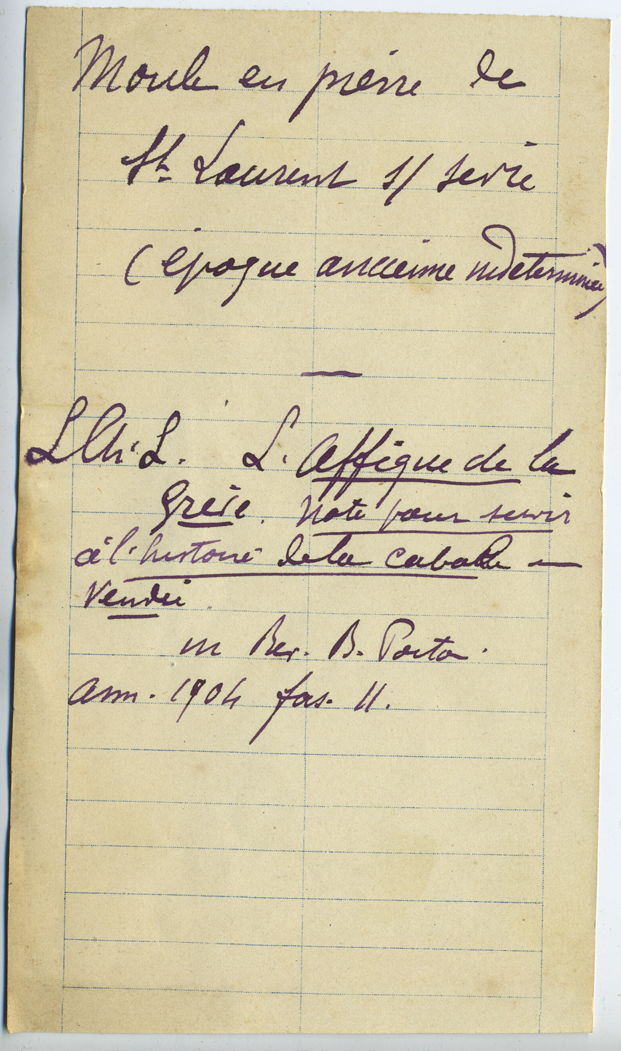 Moule en pierre de
St Laurent s/ sevre
(époque ancienne indeterminée)
L. Ch. L. L. Affique de la
Grève. Note pour servir
à l'histoire de la cabale en
Vendée.
in Rev. B. Poitou.
ann. 1904 fas. 11.